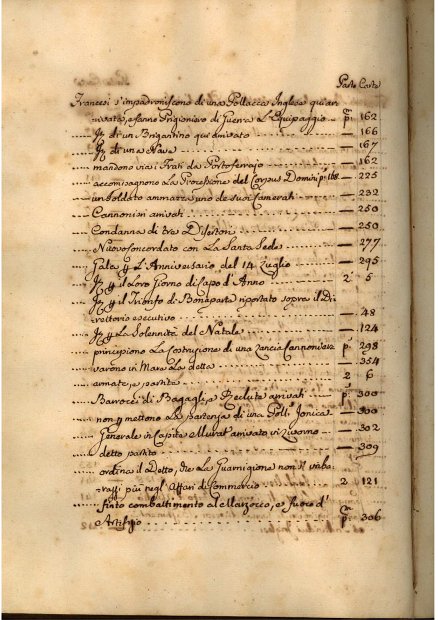 Parte Carte
Francesi s'impadroniscono di una Pollacca Inglese qui ar-
rivata, e fanno Prigioniero di Guerra L'Equipaggio .. p. 162
.... Jd. di un Brigantino qui arrivato ... — 166
.... Jd. di una Nave ... — 167
.... mandono via i Frati da Portoferrajo ... — 162
.... accompagnono La Processione del Corpus Domini p. 168. — 225
.... un Soldato ammazza uno de suoi Camerati ... — 232
.... Cannonieri arrivati ... — 250
.... Condanna di tre Disertori ... — 250
.... Nuovo Concordato con La Santa Sede ... — 277
.... Gala p. L'Anniversario del 14 Luglio ... — 295
.... Jd. p. il Loro Giorno di Capo d'Anno ... 2 5
.... Jd. p. il Trionfo di Bonaparte riportato sopra il Di-
rettorio esecutivo ... — 48
.... Jd. p. La Solennità del Natale ... — 124
.... principiono La Costruzione di una Lancia Cannoniera p. 298
.... varono in Mare La detta ... — 354
.... armate, e partite ... 2 6
.... Barocci di Bagagli, e Reclute arrivati ... p. 300
.... non permettono La partenza di una Poll. Jonica — 300
.... Generale in Capite Murat arrivato in Livorno — 302
.... detto partito ... — 309
.... ordina il Detto, che La Guarnigione non s'imba-
razzi più negl'Affari di Commercio ... 2 121
.... finto combattimento al Marzocco, e fuoco d'
Artifizio ... p. 306